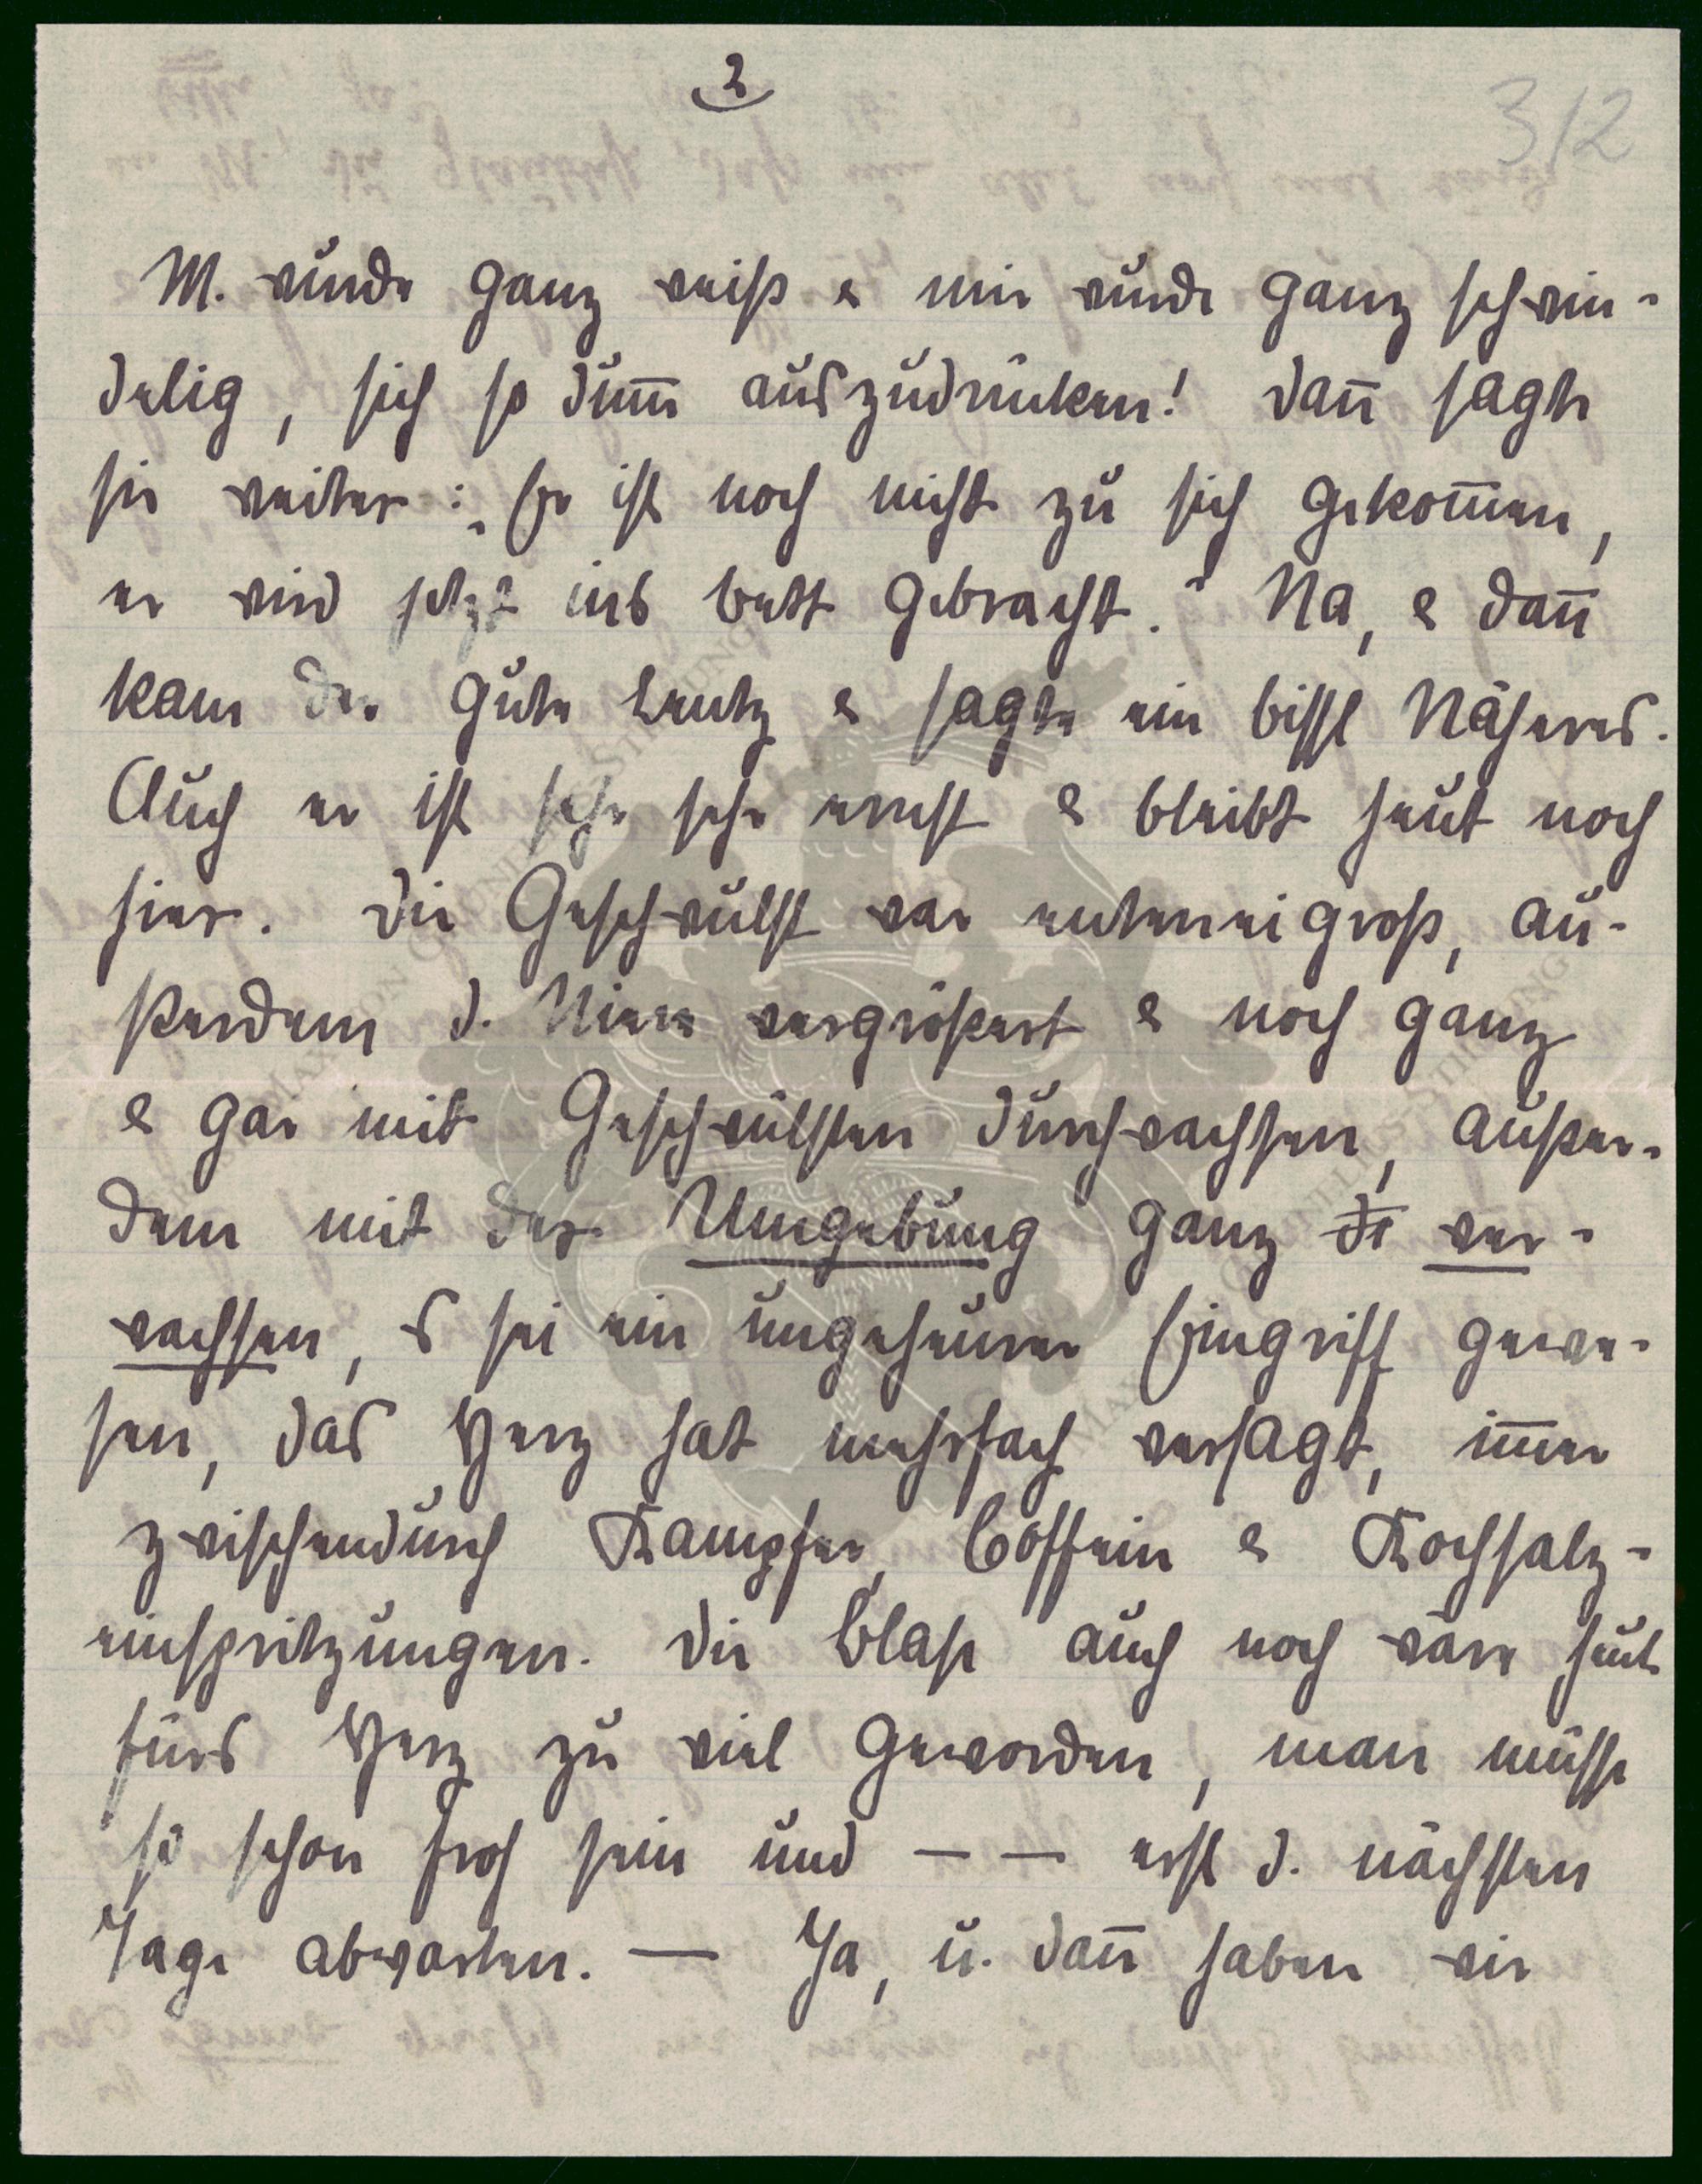 2
312
M. wurde ganz weiß & mir wurde ganz schwin-
delig, sich so dum̅ auszudrücken! Dan̅ sagte
sie weiter: „Er ist noch nicht zu sich gekom̅en,
er wird jetzt ins Bett gebracht.“ Na, & dan̅
kam der gute Lentz & sagte ein bissl Näheres.
Auch er ist sehr sehr ernst & bleibt heut noch
hier. Die Geschwulst war entereigroß, au-
ßerdem d. Niere vergrößert & noch ganz
& gar mit Geschwülsten durchwachsen, außer-
dem mit der Umgebung ganz ver-
wachsen, es sei ein ungeheurer Eingriff gewe-
sen, das Herz hat mehrfach versagt, im̅er
zwischendurch Kampfer, Coffein & Kochsalz-
einspritzungen. Die Blase auch noch wäre heut
fürs Herz zu viel geworden, man müsse
so schon froh sein und — — erst d. nächsten
Tage abwarten. — Ja, u. dan̅ haben wir